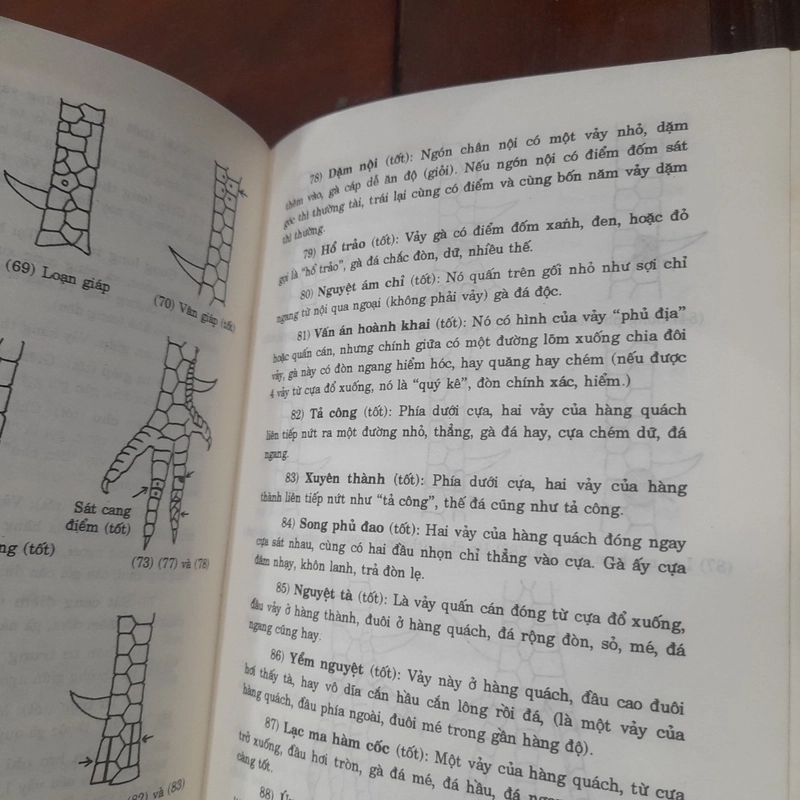 (69) Loạn giáp
(70) Vân giáp (tốt)
Sát cang
điểm (tốt)
(tốt)
(73) (77) và (78)
(82) và (83)
78) Dặm nội (tốt): Ngón chân nội có một vảy nhỏ, dặm
thêm vào, gà cáp dễ ăn độ (giỏi). Nếu ngón nội có điểm đốm sát
góc thì thường tài, trái lại cùng có điểm và cùng bốn năm vảy dặm
thì thường.
79) Hổ trảo (tốt): Vảy gà có điểm đốm xanh, đen, hoặc đỏ
gọi là “hổ trảo”, gà đá chắc đòn, dữ, nhiều thế.
80) Nguyệt ám chỉ (tốt): Nó quấn trên gối nhỏ như sợi chỉ
ngang từ nội qua ngoại (không phải vảy) gà đá độc.
81) Vấn án hoành khai (tốt): Nó có hình của vảy “phủ địa”
hoặc quấn cán, nhưng chính giữa có một đường lõm xuống chia đôi
vảy, gà này có đòn ngang hiểm hóc, hay quăng hay chém (nếu được
4 vảy từ cựa đổ xuống, nó là “quý kê”, đòn chính xác, hiểm.)
82) Tả công (tốt): Phía dưới cựa, hai vảy của hàng quách
liên tiếp nứt ra một đường nhỏ, thẳng, gà đá hay, cựa chém dữ, đá
ngang.
83) Xuyên thành (tốt): Phía dưới cựa, hai vảy của hàng
thành liên tiếp nứt như “tả công”, thế đá cũng như tả công.
84) Song phủ đao (tốt): Hai vảy của hàng quách đóng ngay
cựa sát nhau, cùng có hai đầu nhọn chỉ thẳng vào cựa. Gà ấy cựa
đâm nhạy, khôn lanh, trả đòn lẹ.
85) Nguyệt tà (tốt): Là vảy quấn cán đóng từ cựa đổ xuống,
đầu vảy ở hàng thành, đuôi ở hàng quách, đá rộng đòn, sỏ, mé, đá
ngang cũng hay.
86) Yểm nguyệt (tốt): Vảy này ở hàng quách, đầu cao đuôi
hơi thấy tà, hay vô dĩa cắn hầu cắn lông rồi đá, (là một vảy của
hàng quách, đầu phía ngoài, đuôi mé trong gần hàng độ).
87) Lạc ma hàm cốc (tốt): Một vảy của hàng quách, từ cựa
trở xuống, đầu hơi tròn, gà đá mé, đá hầu, đá
càng tốt.
88)